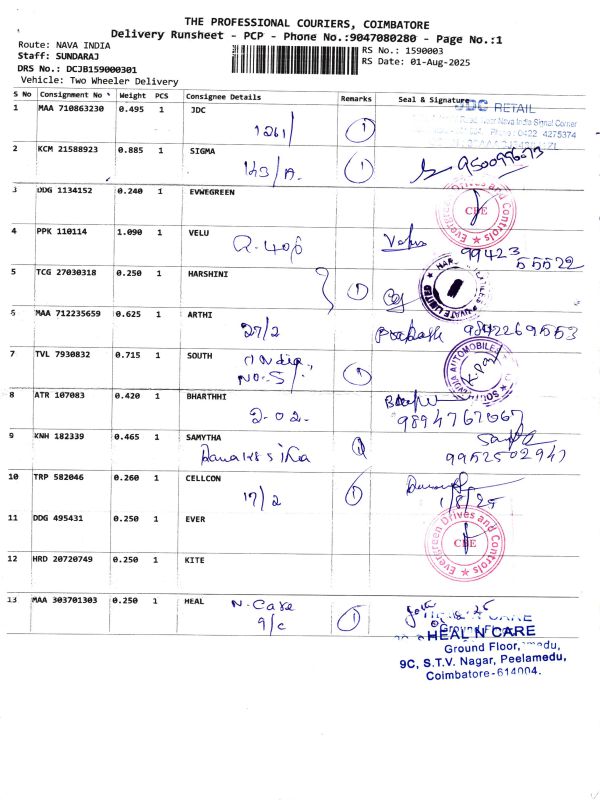 THE PROFESSIONAL COURIERS, COIMBATORE
Delivery Runsheet - PCP - Phone No.:9047080280 - Page No.:1
Route: NAVA INDIA
RS No.: 1590003
Staff: SUNDARAJ
RS Date: 01-Aug-2025
DRS No.: DCJB159000301
Vehicle: Two Wheeler Delivery
S No Consignment No Weight PCS Consignee Details Remarks Seal & Signature
1 MAA 710863230 0.495 1 JDC
JDC RETAIL
1261/ 1
Near Nava India Signal Corner
0422 4275374
2 KCM 21588923 0.885 1 SIGMA
143/A. 1 9500996073
3 DDG 1134152 0.240 1 EVWEGREEN
Evergreen Drives and Controls
CBE
4 PPK 110114 1.090 1 VELU
Velu
99423
55522
5 TCG 27030318 0.250 1 HARSHINI
1
PRIVATE LIMITED
6 MAA 712235659 0.625 1 ARTHI
27/2 9842269553
7 TVL 7930832 0.715 1 SOUTH
India
No. 5/ 1
SOUTH INDIA AUTOMOBILE
8 ATR 107083 0.420 1 BHARTHHI
2.02. 9894767067
9 KNH 182339 0.465 1 SAMYTHA
1
9952502947
10 TRP 582046 0.260 1 CELLCON
17/2 1
1/8/25
11 DDG 495431 0.250 1 EVER
Evergreen Drives and Controls
CBE
12 HRD 20720749 0.250 1 KITE
13 MAA 303701303 0.250 1 HEAL
N. Care
9/c 1
HEAL N CARE
Ground Floor,
9C, S.T.V. Nagar, Peelamedu,
Coimbatore-614004.